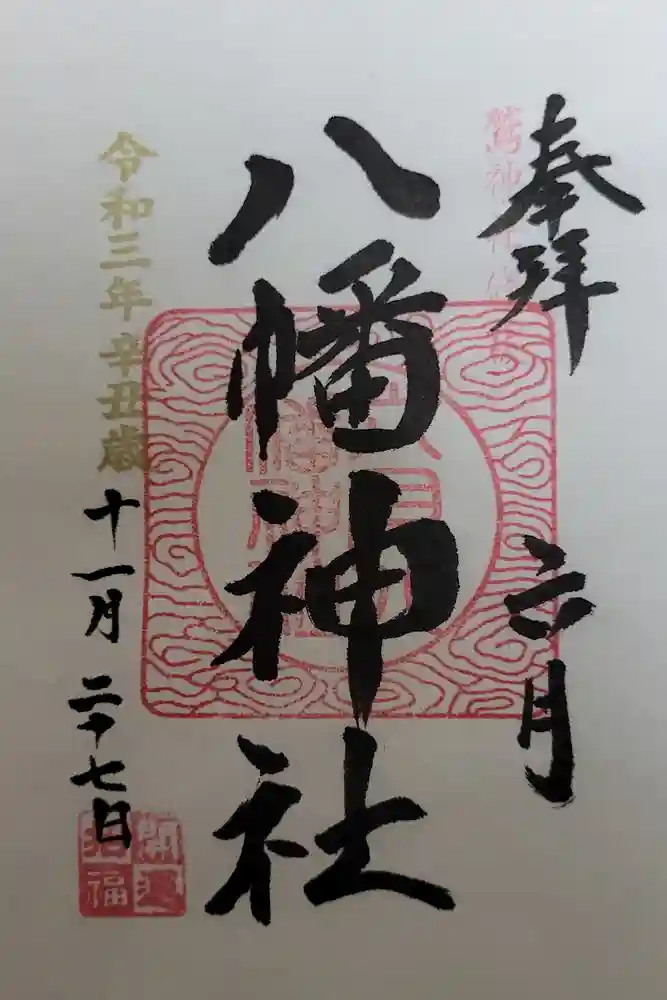 奉拝
六月
八幡神社
令和三年辛丑歳
十一月二十七日
開運
招福